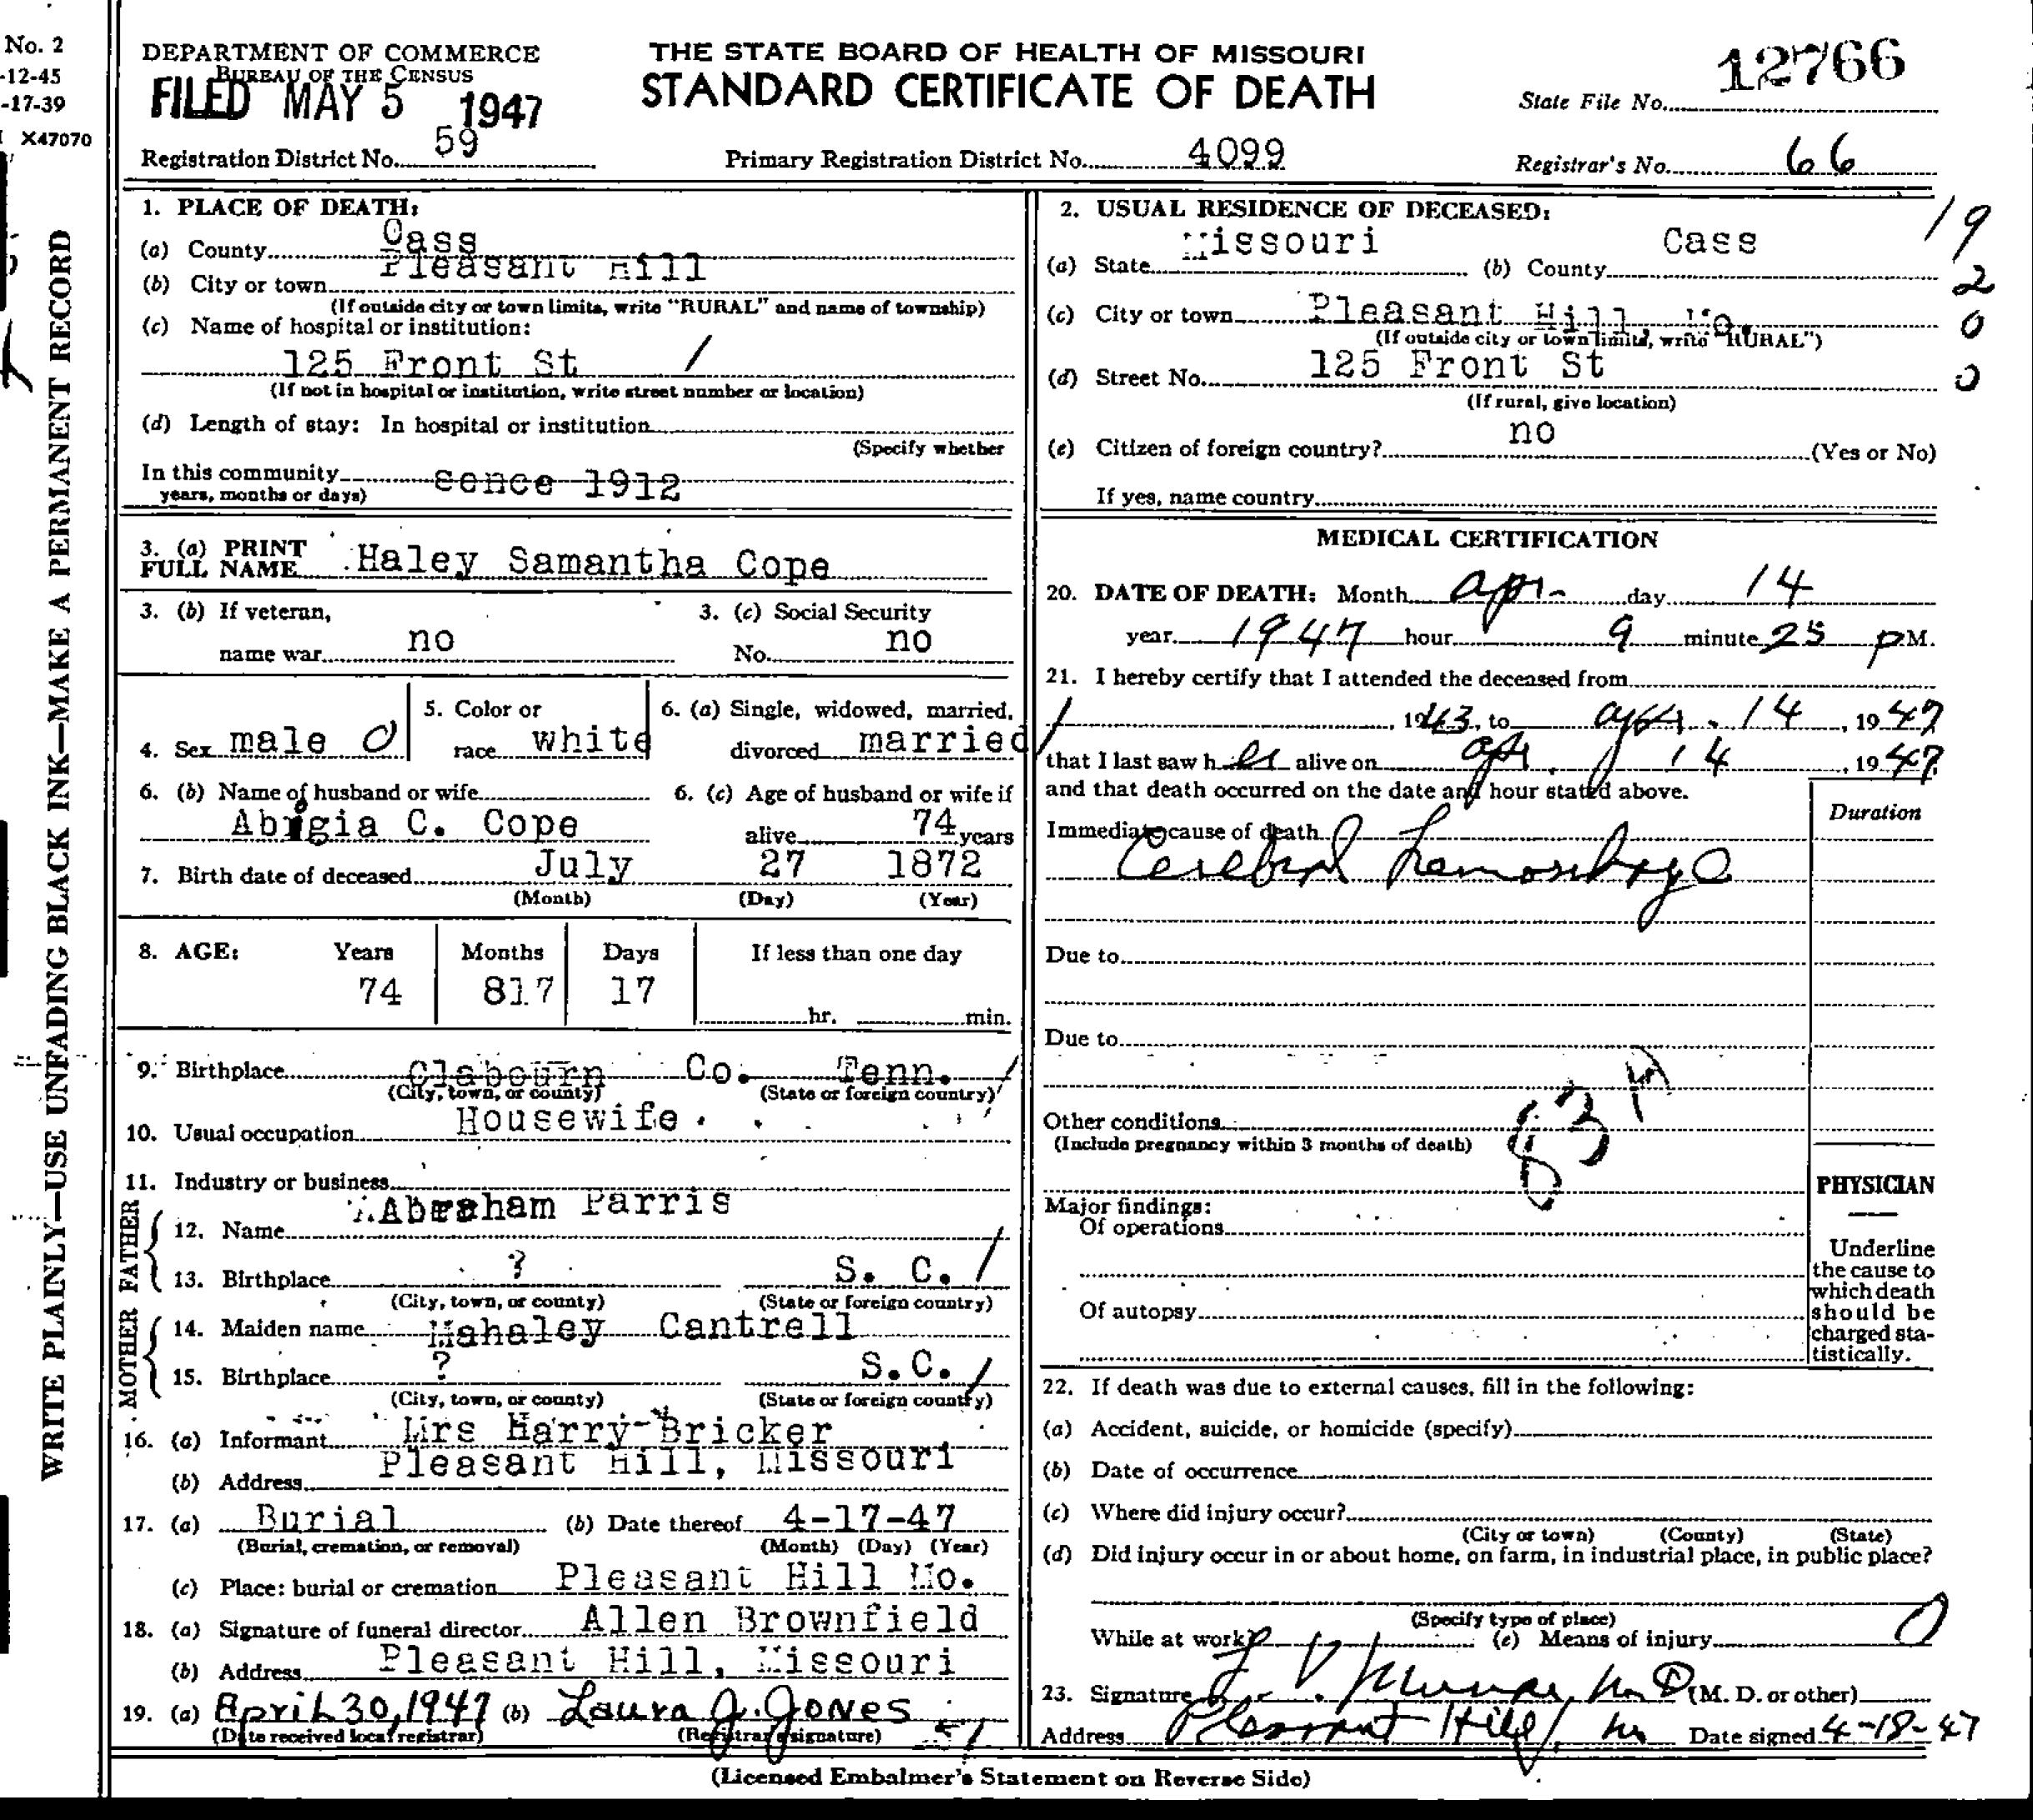 No. 2
-12-45
-17-39
X47070
WRITE PLAINLY—USE UNFADING BLACK INK—MAKE A PERMANENT RECORD
DEPARTMENT OF COMMERCE
BUREAU OF THE CENSUS
FILED MAY 5 1947
THE STATE BOARD OF HEALTH OF MISSOURI
STANDARD CERTIFICATE OF DEATH
State File No. 12766
Registration District No. 59
Primary Registration District No. 4099
Registrar's No. 66
1. PLACE OF DEATH:
(a) County Cass
(b) City or town Pleasant Hill
(If outside city or town limits, write "RURAL" and name of township)
(c) Name of hospital or institution:
125 Front St /
(If not in hospital or institution, write street number or location)
(d) Length of stay: In hospital or institution
(Specify whether
In this community sence 1912
years, months or days)
3. (a) PRINT
FULL NAME Haley Samantha Cope
3. (b) If veteran,
name war no
3. (c) Social Security
No. no
4. Sex male 0
5. Color or
race white
6. (a) Single, widowed, married,
divorced married
6. (b) Name of husband or wife
Abigia C. Cope
6. (c) Age of husband or wife if
alive 74 years
7. Birth date of deceased July 27 1872
(Month) (Day) (Year)
8. AGE: Years Months Days If less than one day
74 817 17 hr. min.
9. Birthplace Clabourn Co. Tenn.
(City, town, or county) (State or foreign country)
10. Usual occupation Housewife
11. Industry or business
FATHER
12. Name Abraham Parris
13. Birthplace ? S. C. /
(City, town, or county) (State or foreign country)
MOTHER
14. Maiden name Mahaley Cantrell
15. Birthplace ? S.C. /
(City, town, or county) (State or foreign country)
16. (a) Informant Mrs Harry Bricker
(b) Address Pleasant Hill, Missouri
17. (a) Burial (b) Date thereof 4-17-47
(Burial, cremation, or removal) (Month) (Day) (Year)
(c) Place: burial or cremation Pleasant Hill Mo.
18. (a) Signature of funeral director Allen Brownfield
(b) Address Pleasant Hill, Missouri
19. (a) April 30, 1947 (b) Laura J. Jones
(Date received local registrar) (Registrar's signature)
2. USUAL RESIDENCE OF DECEASED:
(a) State Missouri (b) County Cass
(c) City or town Pleasant Hill, Mo.
(If outside city or town limits, write "RURAL")
(d) Street No. 125 Front St
(If rural, give location)
(e) Citizen of foreign country? no (Yes or No)
If yes, name country
19
2
0
0
MEDICAL CERTIFICATION
20. DATE OF DEATH: Month Apr- day 14
year 1947 hour 9 minute 25 P M.
21. I hereby certify that I attended the deceased from
1943, to Apr. 14, 1947
that I last saw her alive on Apr. 14, 1947
and that death occurred on the date and hour stated above.
Duration
Immediate cause of death
Cerebral hemorrhage
Due to
Due to
Other conditions
(Include pregnancy within 3 months of death)
83A
PHYSICIAN
Major findings:
Of operations
Of autopsy
Underline
the cause to
which death
should be
charged sta-
tistically.
22. If death was due to external causes, fill in the following:
(a) Accident, suicide, or homicide (specify)
(b) Date of occurrence
(c) Where did injury occur?
(City or town) (County) (State)
(d) Did injury occur in or about home, on farm, in industrial place, in public place?
(Specify type of place)
While at work? (e) Means of injury
23. Signature M D (M. D. or other)
Address Pleasant Hill, Mo Date signed 4-18-47
(Licensed Embalmer's Statement on Reverse Side)